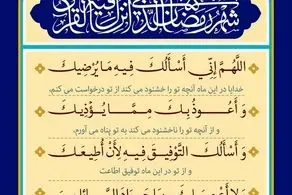 شهر رمضان الذی انزل فیه القرآن
اَللّهُمَّ اِنّی اَسْأَلُكَ فیهِ ما یُرْضیكَ
خدایا در این ماه آنچه تو را خشنود می کند از تو درخواست می کنم،
وَ اَعُوذُ بِكَ مِمّا یُؤْذیكَ
و از آنچه تو را ناخشنود می کند به تو پناه می آورم.
وَ اَسْأَلُكَ التَّوْفیقَ فیهِ لِأَنْ اُطیعَكَ
و از تو در این ماه توفیق اطاعت